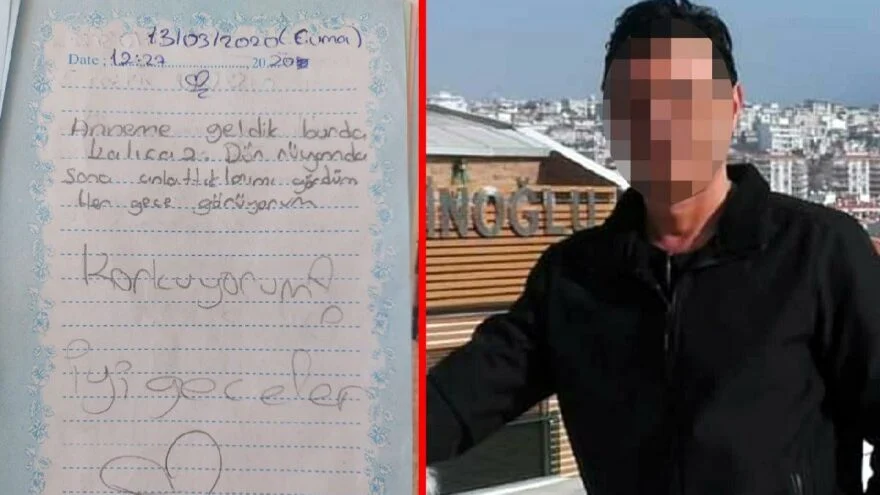 13/03/2020 (Cuma)
Date : 12:27 20 20
Anneme geldik burda
kalıcaz. Dün rüyamda
sana anlattıklarımı gördüm
Her gece görüyorum
Korkuyorum
İyi geceler
INOĞLU